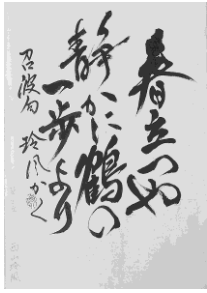 春立つや
静かに鶴の
一歩より
召波句 玲風かく